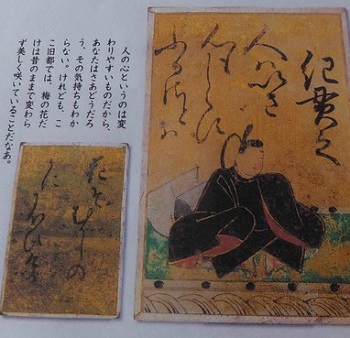 紀貫之
人はいさ
心もしらす
ふるさとは
人の心というのは変
わりやすいものだから、
あなたはさあどうだろ
う、その気持ちもわか
らない。けれども、こ
こ旧都では、梅の花だ
けは昔のままで変わら
ず美しく咲いていることだなあ。
花そむかしの